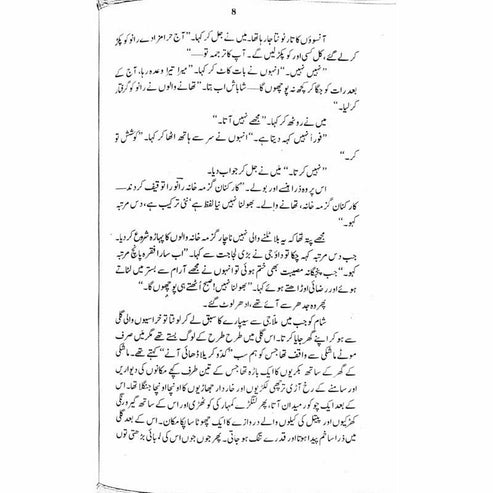 8
آنسوؤں کا تار ٹوٹتا جا رہا تھا۔ میں نے جل کر کہا۔ ”آج حرامزادے رانو کو پکڑ
کر لے گئے، کل کسی اور کو پکڑ لیں گے۔ آپ کا ترجمہ تو—“
”نہیں نہیں۔“ انہوں نے بات کاٹ کر کہا۔ ”میرا تیرا وعدہ رہا، آج کے
بعد رات کو جگا کر کچھ نہ پوچھوں گا— شاباش اب بتا۔ ”تھانے والوں نے رانو کو گرفتار
کر لیا۔“
میں نے روٹھ کر کہا۔ ”مجھے نہیں آتا۔“
”فوراً نہیں کہہ دیتا ہے۔“ انہوں نے سر سے ہاتھ اٹھا کر کہا۔ ”کوشش تو
کر۔“
”نہیں کرتا۔“ میں نے جل کر جواب دیا۔
اس پر وہ ذرا ہنسے اور بولے۔ ”کارکنان گزمہ خانہ رانو را توقیف کردند—
کارکنان گزمہ خانہ، تھانے والے۔ بھولنا نہیں نیا لفظ ہے‘ نئی ترکیب ہے، دس مرتبہ
کہو۔“
مجھے پتہ تھا کہ یہ بلا ٹلنے والی نہیں ناچار گزمہ خانہ والوں کا پہاڑہ شروع کر دیا۔
جب دس مرتبہ کہہ چکا تو داؤ جی نے بڑی لجاجت سے کہا۔ ”اب سارا فقرہ پانچ مرتبہ
کہو۔“ جب پنجگانہ مصیبت بھی ختم ہوئی تو انہوں نے مجھے آرام سے بستر میں لٹاتے
ہوئے اور رضائی اوڑھاتے ہوئے کہا۔ ”بھولنا نہیں! صبح اُٹھتے ہی پوچھوں گا۔“
پھر وہ جدھر سے آئے تھے، ادھر لوٹ گئے۔
شام کو جب میں ملا جی سے سیپارے کا سبق لے کر لوٹتا تو خراسیوں والی گلی
سے ہو کر اپنے گھر جایا کرتا۔ اس گلی میں طرح طرح کے لوگ بستے تھے مگر میں صرف
موٹے ماشکی سے واقف تھا جس کو ہم سب ”کدو کریلا ڈھائی آنے“ کہتے تھے۔ ماشکی
کے گھر کے ساتھ بکریوں کا ایک باڑہ تھا جس کے تین طرف کچے مکانوں کی دیواریں
اور سامنے کے رخ آڑی ترچھی لکڑیوں اور خار دار جھاڑیوں کا اونچا اونچا جنگلا تھا۔ اس
کے بعد ایک چوکور میدان آتا، پھر لنگڑے کمہار کی کوٹھڑی اور اس کے ساتھ گیرو رنگی
کھڑکیوں اور پیتل کی کیلوں والے دروازے کا ایک چھوٹا سا پکا مکان۔ اس کے بعد گلی
میں ذرا سا خم پیدا ہوتا اور قدرے تنگ ہو جاتی۔ پھر جوں جوں اس کی لمبائی بڑھتی توں